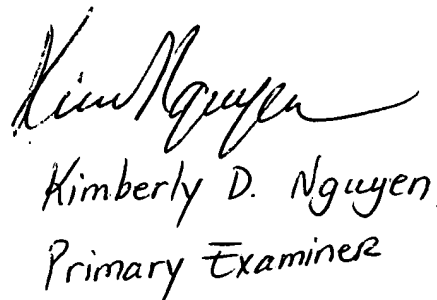 Kim Nguyen
Kimberly D. Nguyen
Primary Examiner